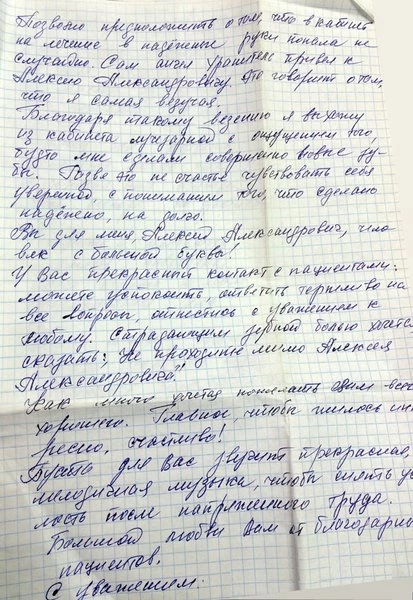 Позволю предположить о том, что в клинику
на лечение в надёжные руки попала не
случайно. Сам ангел Хранитель привёл к
Алексею Александровичу. Это говорит о том,
что я самая везучая.
Благодаря такому везению я выхожу
из кабинета лучезарной с ощущением того,
будто мне сделали совершенно новые зу-
бы. Разве это не счастье чувствовать себя
уверенной, с пониманием того, что сделано
надёжно, на долго.
Вы для меня, Алексей Александрович, чело
век с большой буквы!
У Вас прекрасный контакт с пациентами:
можете успокоить, ответить терпеливо на
все вопросы, отнестись с уважением к
любому. Страдающим зубной болью хочется
сказать: "Не проходите мимо Алексея
Александровича!"
Как много хочется пожелать Вам всего
хорошего. Главное, чтобы жилось инте
ресно, счастливо!
Пусть для Вас звучит прекрасная,
мелодичная музыка, чтобы снять уста
лость после напряжённого труда.
Большой любви Вам от благодарных
пациентов.
С уважением.